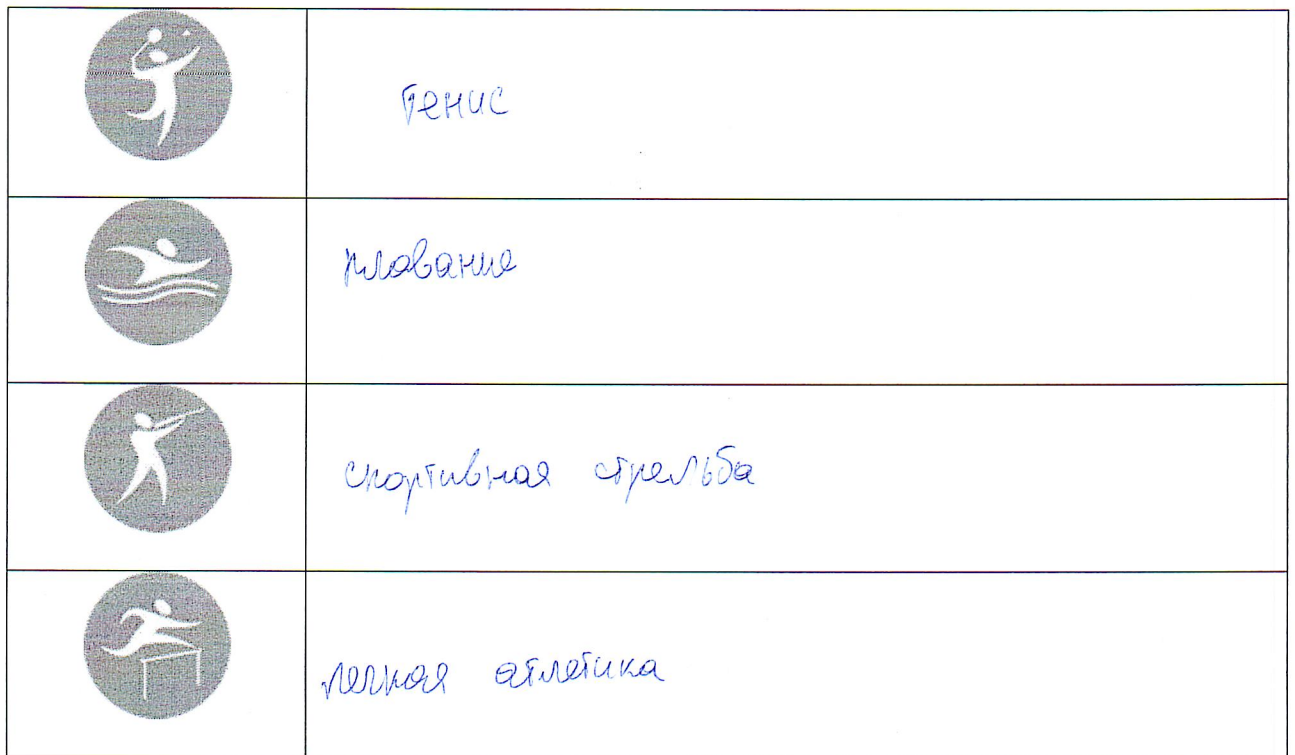 тенис
плавание
спортивная стрельба
легкая атлетика